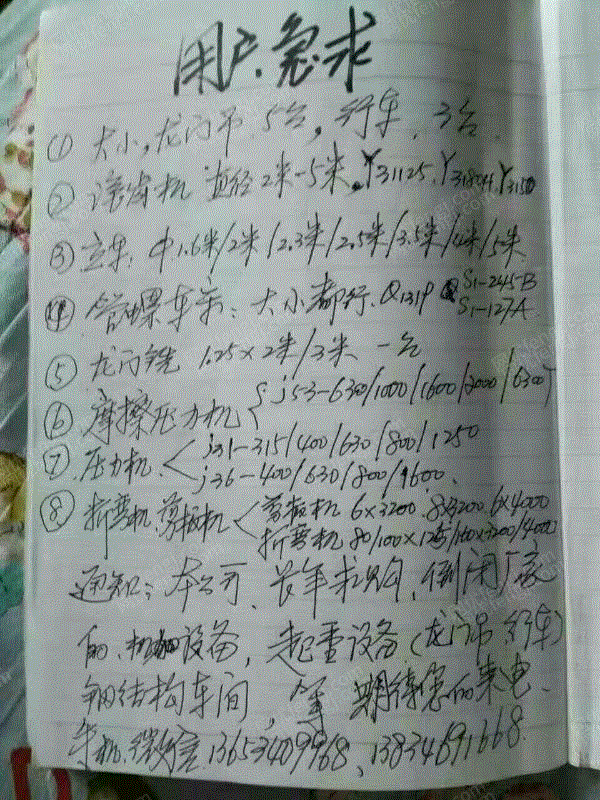 用户急求
① 大小,龙门吊5台,行车,3台.
② 滚齿机 直径2米-5米,Y31125,Y3180H,Y3150
③ 立车:中1.6米/2米/2.3米/2.5米/3.5米/4米/5米
④ 管螺车床:大小都行.Q1319 S1-245B
S1-127A
⑤ 龙门铣 1.25×2米/3米 一台
⑥ 摩擦压力机 j53-630/1000/1600/3000/6300T
⑦ 压力机 j31-315/400/630/800/1250
j36-400/630/800/1600.
⑧ 折弯机.剪板机 剪板机 6×3200.8×3200.6×4000
折弯机 80/100×/160×3200/4000
通知:本公司、长年求购,倒闭厂家
的、机加设备,起重设备(龙门吊 行车)
钢结构车间,等 期待您的来电.
手机.微信 13653409968、13834691668.